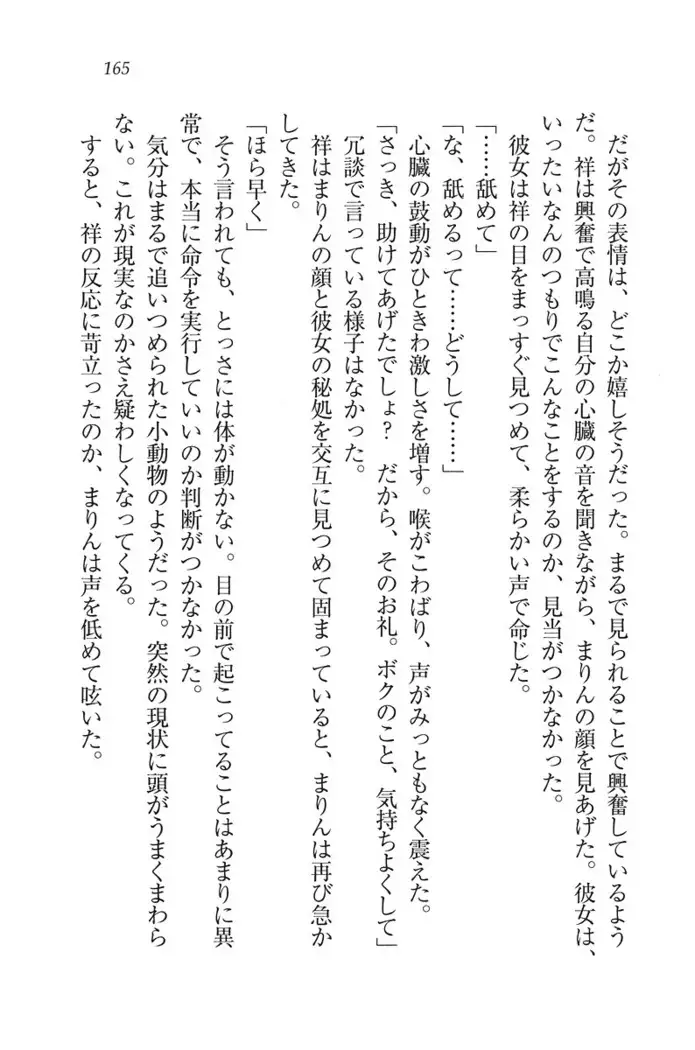 165
だがその表情は、どこか嬉しそうだった。まるで見られることで興奮しているよう
だ。祥は興奮で高鳴る自分の心臓の音を聞きながら、まりんの顔を見あげた。彼女は、
いったいなんのつもりでこんなことをするのか、見当がつかなかった。
彼女は祥の目をまっすぐ見つめて、柔らかい声で命じた。
「……舐めて」
「な、舐めるって……どうして……」
心臓の鼓動がひときわ激しさを増す。喉がこわばり、声がみっともなく震えた。
「さっき、助けてあげたでしょ？　だから、そのお礼。ボクのこと、気持ちよくして」
冗談で言っている様子はなかった。
祥はまりんの顔と彼女の秘処を交互に見つめて固まっていると、まりんは再び急か
してきた。
「ほら早く」
そう言われても、とっさには体が動かない。目の前で起こってることはあまりに異
常で、本当に命令を実行していいのか判断がつかなかった。
気分はまるで追いつめられた小動物のようだった。突然の現状に頭がうまくまわら
ない。これが現実なのかさえ疑わしくなってくる。
すると、祥の反応に苛立ったのか、まりんは声を低めて呟いた。